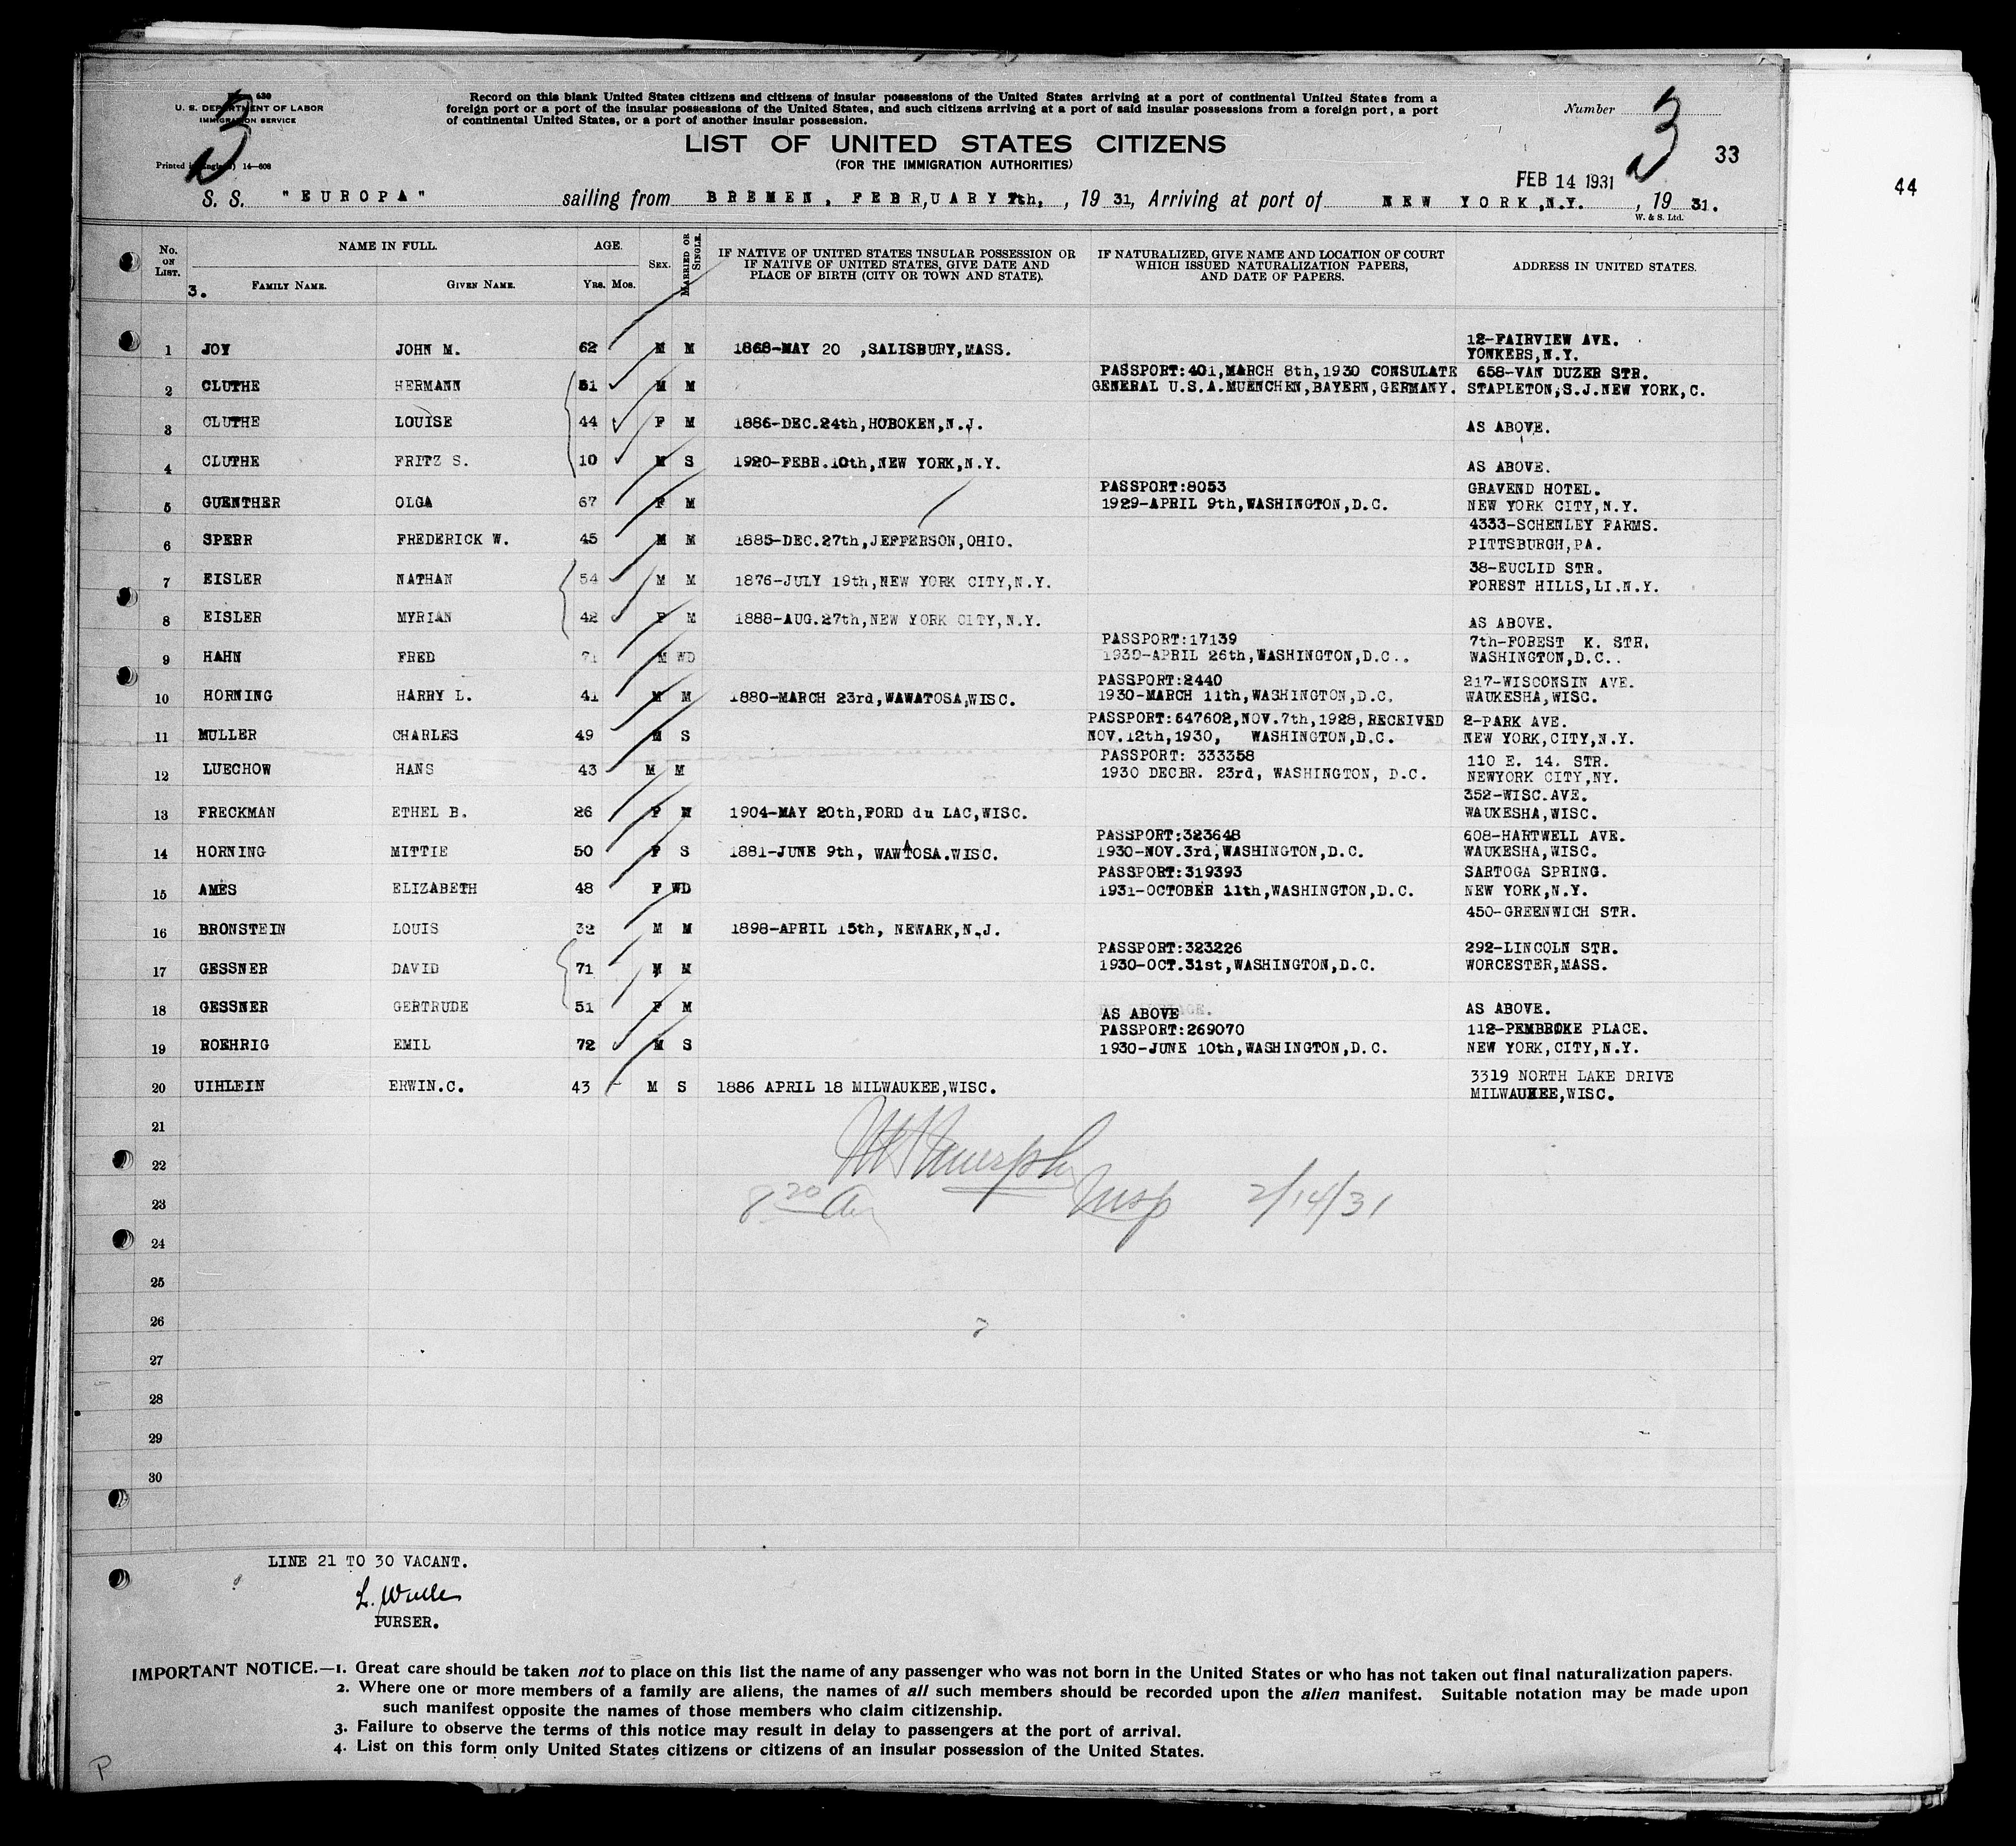 630
U. S. DEPARTMENT OF LABOR
IMMIGRATION SERVICE
Printed in England) 14—808
3
Record on this blank United States citizens and citizens of insular possessions of the United States arriving at a port of continental United States from a
foreign port or a port of the insular possessions of the United States, and such citizens arriving at a port of said insular possessions from a foreign port, a port
of continental United States, or a port of another insular possession.
Number 3
33
44
LIST OF UNITED STATES CITIZENS
(FOR THE IMMIGRATION AUTHORITIES)
FEB 14 1931
S. S. "EUROPA" sailing from BREMEN, FEBR,UARY 7th, , 19 31, Arriving at port of NEW YORK,N.Y. , 19 31.
W. & S. Ltd.
No. ON LIST. NAME IN FULL. AGE. SEX. MARRIED OR SINGLE. IF NATIVE OF UNITED STATES INSULAR POSSESSION OR IF NATIVE OF UNITED STATES, GIVE DATE AND PLACE OF BIRTH (CITY OR TOWN AND STATE). IF NATURALIZED, GIVE NAME AND LOCATION OF COURT WHICH ISSUED NATURALIZATION PAPERS, AND DATE OF PAPERS. ADDRESS IN UNITED STATES.
3. FAMILY NAME. GIVEN NAME. Yrs. Mos.
12-FAIRVIEW AVE.
1 JOY JOHN M. 62 M M 1868-MAY 20 ,SALISBURY,MASS. YONKERS,N.Y.
PASSPORT:401,MARCH 8th,1930 CONSULATE 658-VAN DUZER STR.
2 CLUTHE HERMANN 51 M M GENERAL U.S.A.MUENCHEN,BAYERN,GERMANY. STAPLETON,S.J.NEW YORK,C.
3 CLUTHE LOUISE 44 F M 1886-DEC.24th,HOBOKEN,N.J. AS ABOVE.
4 CLUTHE FRITZ S. 10 M S 1920-FEBR.10th,NEW YORK,N.Y. AS ABOVE.
PASSPORT:8053 GRAVEND HOTEL.
5 GUENTHER OLGA 67 F M 1929-APRIL 9th,WASHINGTON,D.C. NEW YORK CITY,N.Y.
4333-SCHENLEY FARMS.
6 SPERR FREDERICK W. 45 M M 1885-DEC.27th,JEFFERSON,OHIO. PITTSBURGH,PA.
38-EUCLID STR.
7 EISLER NATHAN 54 M M 1876-JULY 19th,NEW YORK CITY,N.Y. FOREST HILLS,LI.N.Y.
8 EISLER MYRIAN 42 F M 1888-AUG.27th,NEW YORK CITY,N.Y. AS ABOVE.
PASSPORT:17139 7th-FOREST K. STR.
9 HAHN FRED 71 M WD 1930-APRIL 26th,WASHINGTON,D.C.. WASHINGTON,D.C..
PASSPORT:2440 217-WISCONSIN AVE.
10 HORNING HARRY L. 41 M M 1880-MARCH 23rd,WAWATOSA,WISC. 1930-MARCH 11th,WASHINGTON,D.C. WAUKESHA,WISC.
PASSPORT:547602,NOV.7th,1928,RECEIVED 2-PARK AVE.
11 MULLER CHARLES 49 M S NOV.12th,1930, WASHINGTON,D.C. NEW YORK,CITY,N.Y.
PASSPORT: 333358 110 E. 14. STR.
12 LUECHOW HANS 43 M M 1930 DECBR. 23rd, WASHINGTON, D.C. NEWYORK CITY,NY.
352-WISC.AVE.
13 FRECKMAN ETHEL B. 26 F M 1904-MAY 20th,FORD du LAC,WISC. WAUKESHA,WISC.
PASSPORT:323648 608-HARTWELL AVE.
14 HORNING MITTIE 50 F S 1881-JUNE 9th, WAWTOSA.WISC. 1930-NOV.3rd,WASHINGTON,D.C. WAUKESHA,WISC.
PASSPORT:319393 SARTOGA SPRING.
15 AMES ELIZABETH 48 F WD 1931-OCTOBER 11th,WASHINGTON,D.C. NEW YORK,N.Y.
450-GREENWICH STR.
16 BRONSTEIN LOUIS 32 M M 1898-APRIL 15th, NEWARK,N.J.
PASSPORT:323226 292-LINCOLN STR.
17 GESSNER DAVID 71 M M 1930-OCT.31st,WASHINGTON,D.C. WORCESTER,MASS.
18 GESSNER GERTRUDE 51 F M AS ABOVE AS ABOVE.
PASSPORT:269070 112-PEMBROKE PLACE.
19 ROEHRIG EMIL 72 M S 1930-JUNE 10th,WASHINGTON,D.C. NEW YORK,CITY,N.Y.
3319 NORTH LAKE DRIVE
20 UIHLEIN ERWIN.C. 43 M S 1886 APRIL 18 MILWAUKEE,WISC. MILWAUKEE,WISC.
21
22 Murphy
23 8 20 Insp 2/14/31
24
25
26
27
28
29
30
LINE 21 TO 30 VACANT.
PURSER.
IMPORTANT NOTICE.—1. Great care should be taken not to place on this list the name of any passenger who was not born in the United States or who has not taken out final naturalization papers.
2. Where one or more members of a family are aliens, the names of all such members should be recorded upon the alien manifest. Suitable notation may be made upon
such manifest opposite the names of those members who claim citizenship.
3. Failure to observe the terms of this notice may result in delay to passengers at the port of arrival.
4. List on this form only United States citizens or citizens of an insular possession of the United States.
P